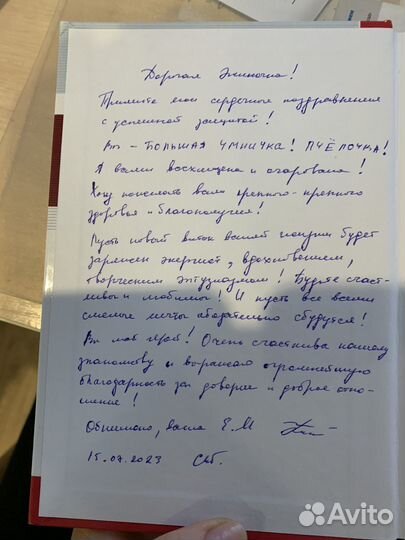 Дорогая Эниночка!
Примите мои сердечные поздравления
с успешной защитой!
Вы - БОЛЬШАЯ УМНИЧКА! ПЧЁЛОЧКА!
Я вами восхищена и очарована!
Хочу пожелать вам крепкого-крепкого
здоровья и благополучия!
Пусть новый виток вашей жизни будет
заряжен энергией, вдохновением,
творческим энтузиазмом! Будьте счаст-
ливы и любимы! И пусть все ваши
смелые мечты обязательно сбудутся!
Вы мой герой! Очень счастлива нашему
знакомству и выражаю огромнейшую
благодарность за доверие и доброе отно-
шение!
Обнимаю, ваша Е.М
15.07.2023 Спб.
Avito